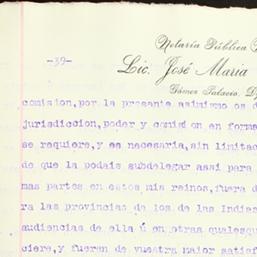 Notaría Pública
-39-
Lic. José Maria
Gómez Palacio, D
comision,por la presente asimismo os d
jurisdiccion,poder y comision en forma
se requiere,y es necesaria,sin limitac
de que la podais subdelegar assi para
mas partes en estos mis reinos,fuera d
ra las provincias de los de las Indias
audiencias de ella ú en otras qualesqu
ciere,y fueren de vuestra maior satisf